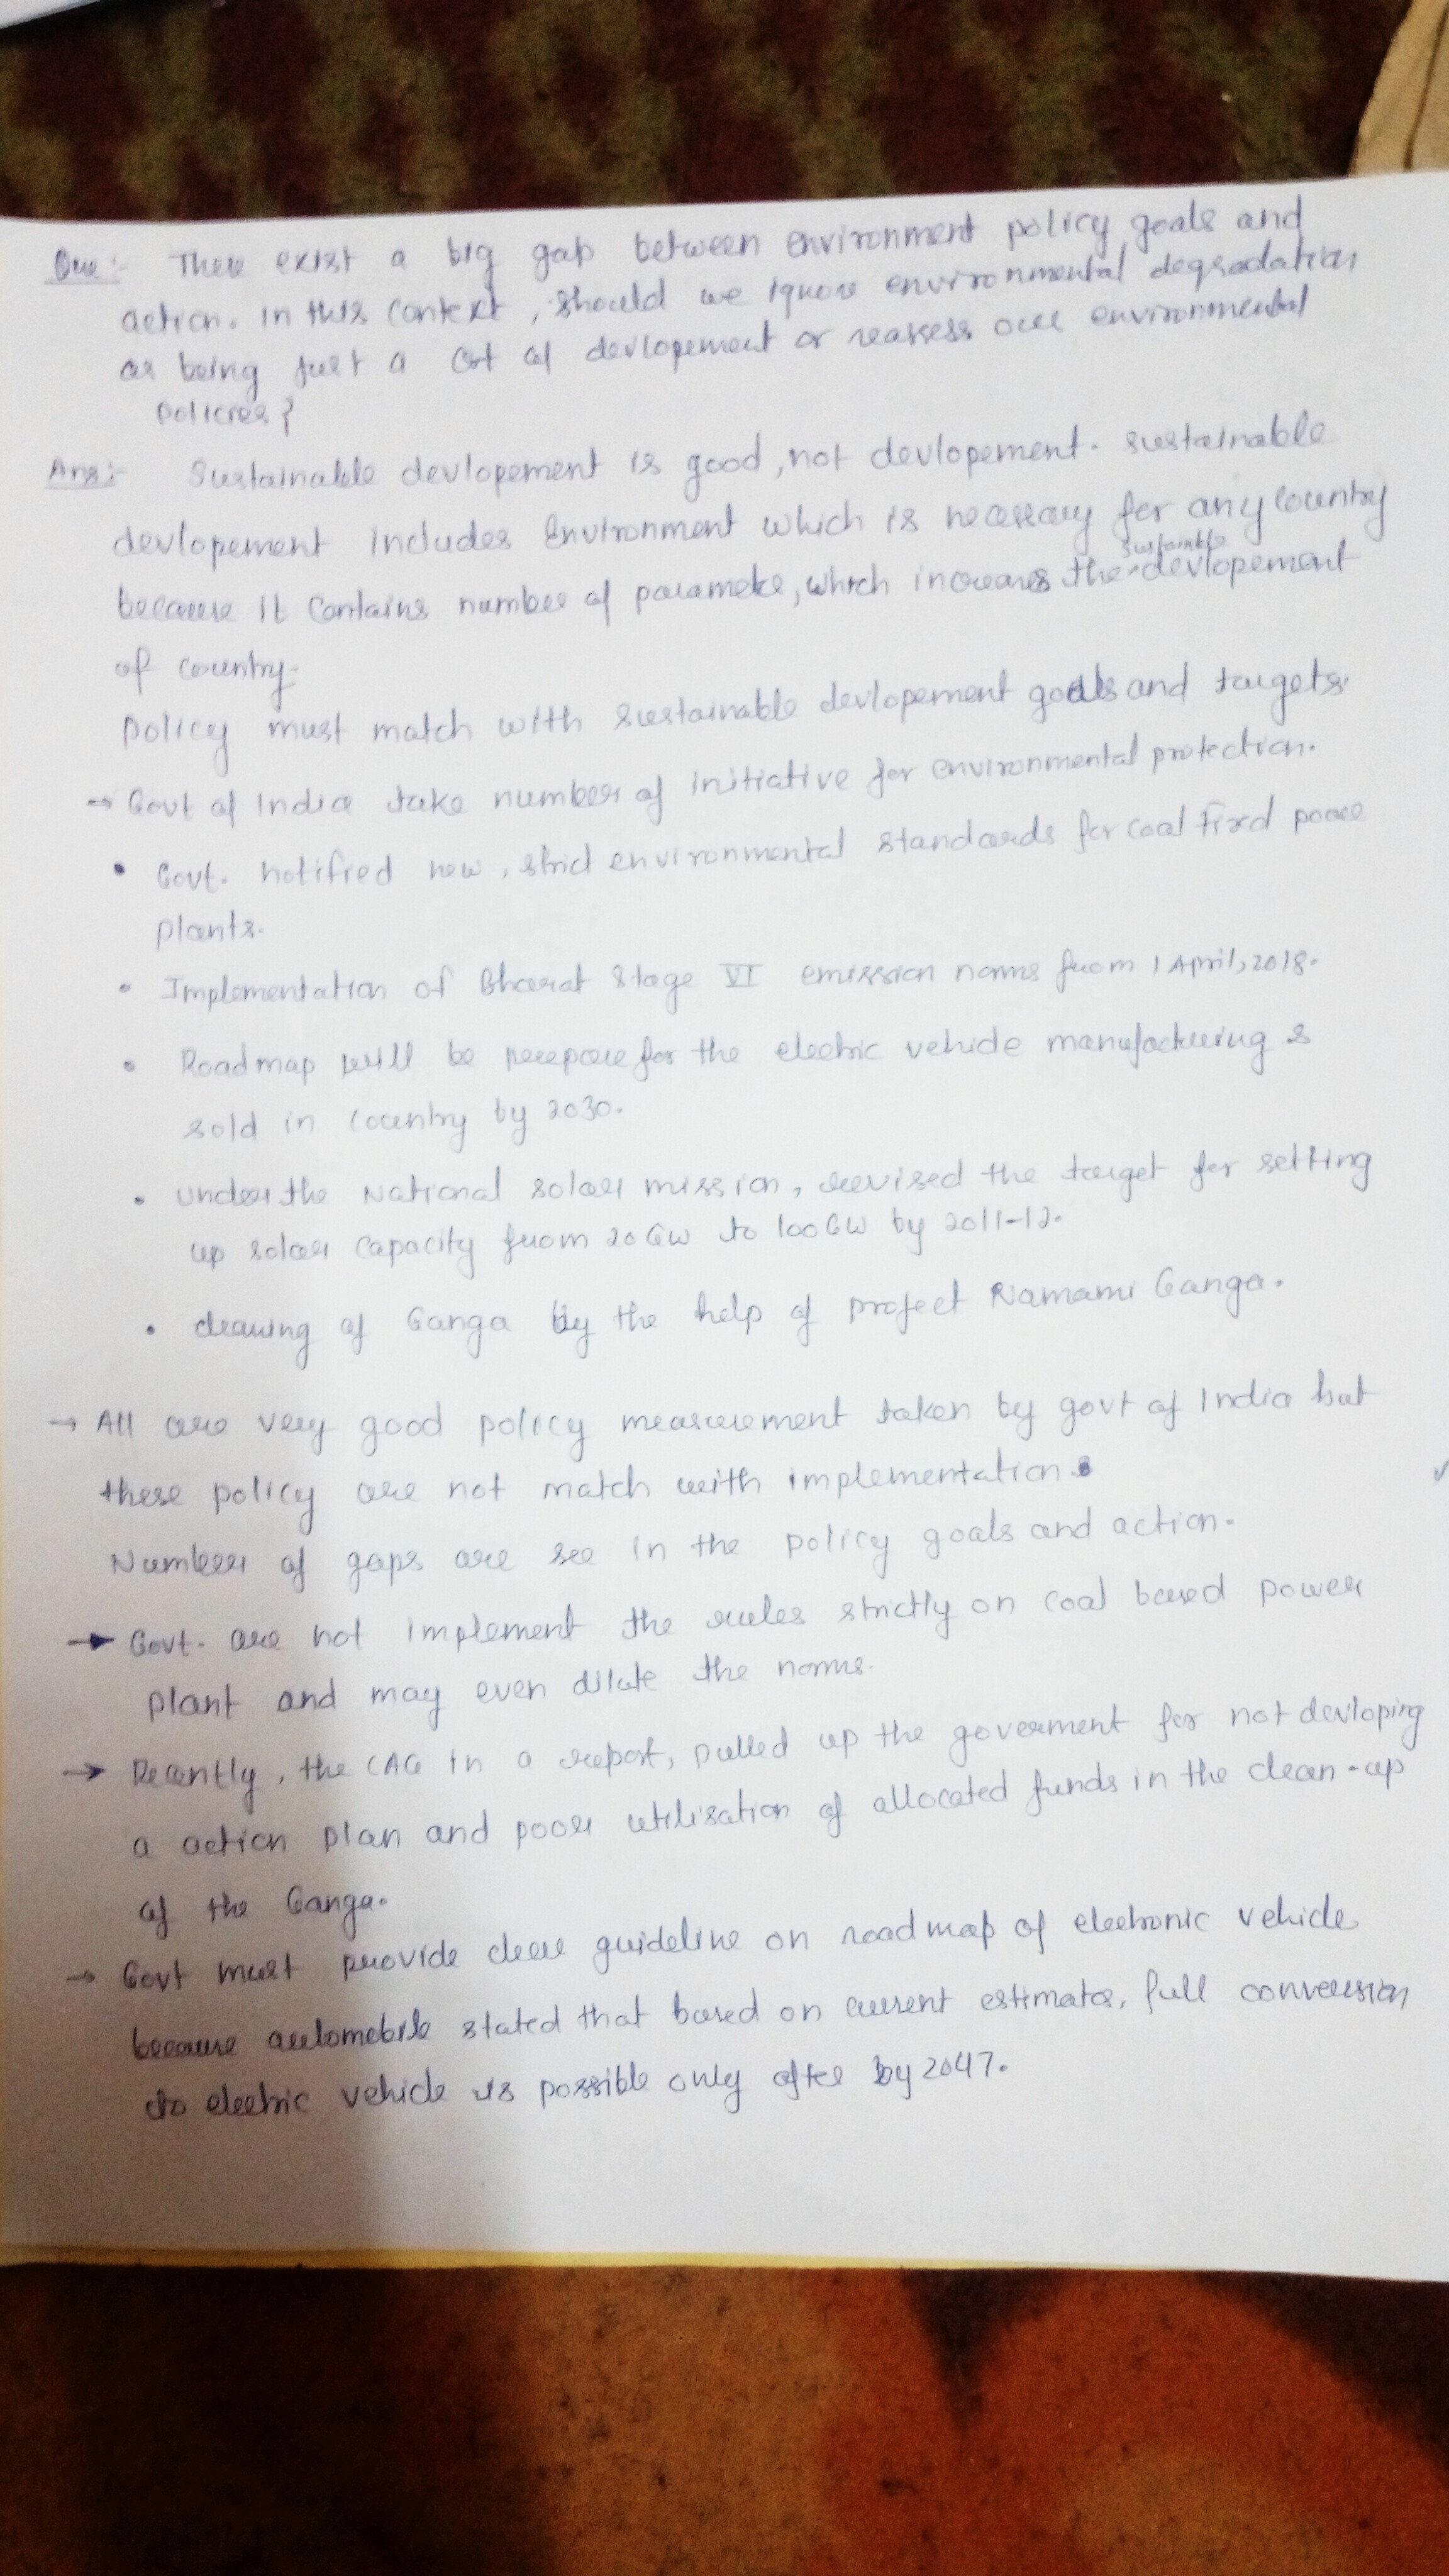 Que:- There exist a big gap between environment policy goals and
action. in this context, should we ignore environmental degradation
as being just a cost of devlopement or reassess our environmental
policies?
Ans:- Sustainable devlopement is good, not devlopement. sustainable
devlopement includes Environment which is necessary for any country
because it contains number of parameter, which increases the sustainable devlopement
of country.
policy must match with sustainable devlopement goals and targets
→ Govt of India take number of initiative for environmental protection.
• Govt. notified new, strict environmental standards for coal fired power
plants.
• Implementation of Bharat Stage VI emission norms from 1 April, 2018.
• Roadmap will be prepare for the electric vehicle manufacturing &
sold in country by 2030.
• under the National solar mission, revised the target for setting
up solar capacity from 20 GW to 100 GW by 2011-12.
• cleaning of Ganga by the help of project Namami Ganga.
→ All are very good policy measurement taken by govt of India but
these policy are not match with implementation.
Number of gaps are see in the policy goals and action.
→ Govt. are not implement the rules strictly on coal based power
plant and may even dilute the norms.
→ Recently, the CAG in a report, pulled up the goverment for not devloping
a action plan and poor utilisation of allocated funds in the clean-up
of the Ganga.
→ Govt must provide clear guideline on road map of electronic vehicle
because automobile stated that based on current estimates, full conversion
to electric vehicle is possible only after by 2047.